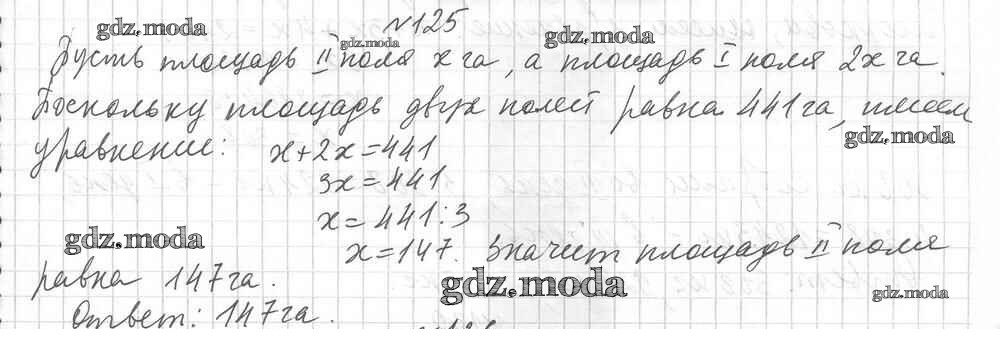 №125
gdz.moda
gdz.moda
gdz.moda
Пусть площадь II поля x га, а площадь I поля 2x га.
Поскольку площадь двух полей равна 441 га, имеем
gdz.moda
уравнение: x+2x=441
3x=441
x=441:3
gdz.moda
x=147. Значит площадь II поля
равна 147га.
gdz.moda
gdz.moda
Ответ: 147га.